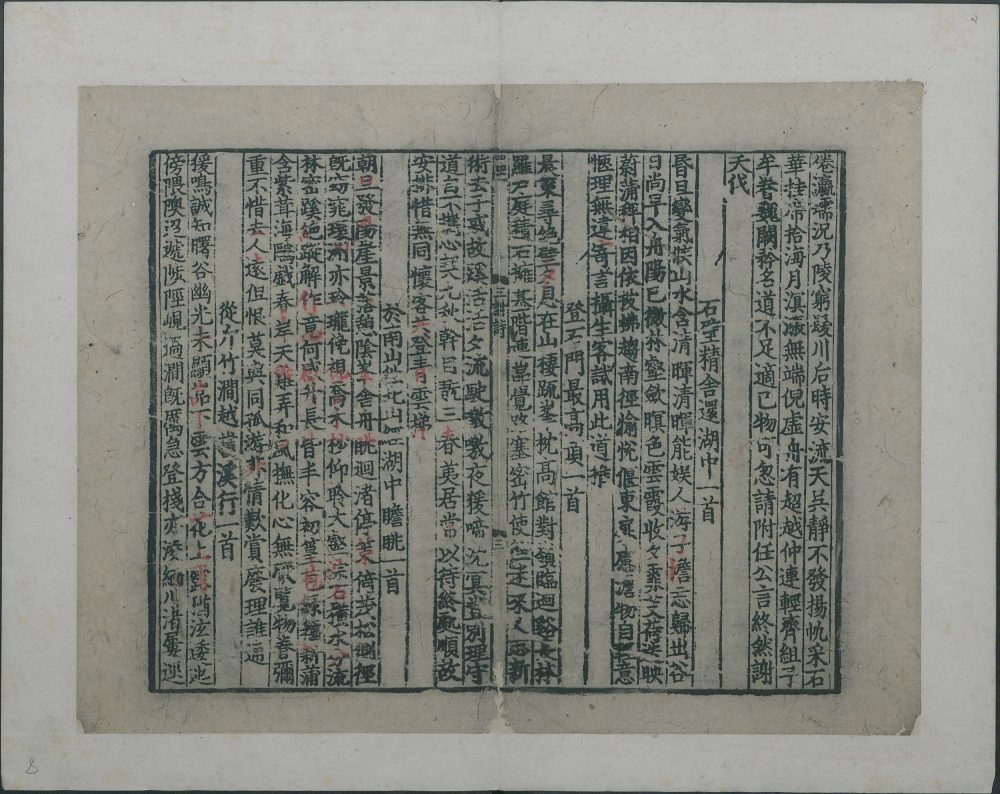 倦瀛壖況乃陵窮髮川后時安流天吳靜不發揚帆采石
華挂席拾海月溟漲無端倪虛舟有超越仲連輕齊組子
牟眷魏闕矜名道不足適己物可忽請附任公言終然謝
天伐
石壁精舍還湖中一首
昏旦變氣候山水含清暉清暉能娛人游子憺忘歸出谷
日尚早入舟陽已微林壑斂暝色雲霞收夕霏芰荷迭映
蔚蒲稗相因依披拂趨南徑愉悅偃東扉慮澹物自輕意
愜理無違寄言攝生客試用此道推
登石門最高頂一首
晨策尋絕壁夕息在山棲疏峯枕高館對嶺臨迴谿長林
羅戶庭積石擁基階連巖覺路塞密竹使徑迷來人忘新
術去子惑故蹊活活夕流駛噭噭夜猨啼沈冥豈別理守
道自不攜心契九秋幹目翫三春荑居常以待終處順故
安排惜無同懷客共登青雲梯
三謝詩
三
於南山往北山經湖中瞻眺一首
朝旦發陽崖景落憩陰峯舍舟眺迴渚停策倚茂松側徑
既窈窕環洲亦玲瓏俛視喬木杪仰聆大壑淙石橫水分流
林密蹊絕蹤解作竟何感升長皆丰容初篁苞綠籜新蒲
含紫茸海鷗戲春岸天雞弄和風撫化心無厭覽物眷彌
重不惜去人遠但恨莫與同孤游非情歎賞廢理誰通
從斤竹澗越嶺溪行一首
猨鳴誠知曙谷幽光未顯巖下雲方合花上露猶泫逶迤
傍隈隩迢遞陟陘峴過澗既厲急登棧亦陵緬川渚屢逕